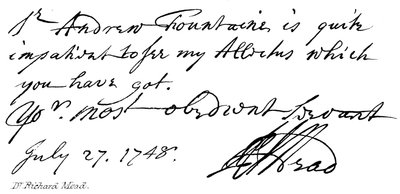 Sr. Andrew Fountaine is quite
impatient to see my Allectus which
you have got.
Yor. most obedient servant
RMead
July 27. 1748.
Dr. Richard Mead.